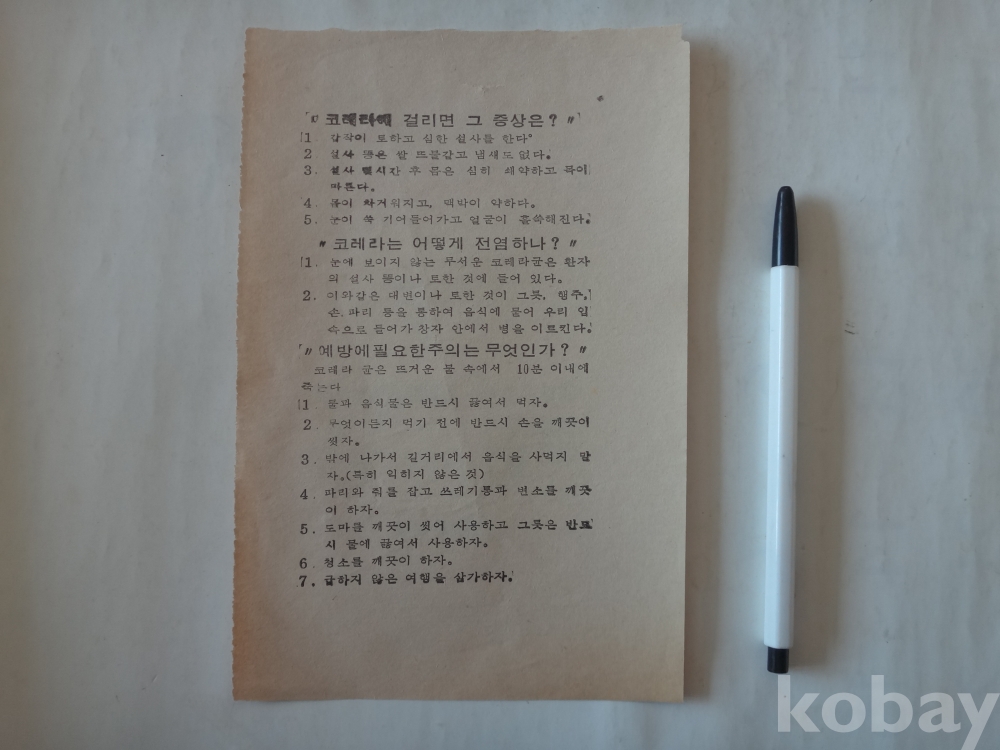 「〃 코레라에 걸리면 그 증상은? 〃」
1. 갑작이 토하고 심한 설사를 한다°
2 설사 똥은 쌀 뜨물같고 냄새도 없다。
3. 설사 몇시간 후 몸은 심히 쇄약하고 목이
마른다。
4. 몸이 차거워지고, 맥박이 약하다。
5. 눈이 쑥 기어들어가고 얼굴이 홀쭉해진다。
〃 코레라는 어떻게 전염하나? 〃
1. 눈에 보이지 않는 무서운 코레라균은 환자
의 설사 똥이나 토한 것에 들어 있다。
2. 이와같은 대변이나 토한 것이 그릇, 행주,
손, 파리 등을 통하여 음식에 묻어 우리 입
속으로 들어가 창자 안에서 병을 이르킨다。
「〃 예방에필요한주의는무엇인가? 〃
코레라 균은 뜨거운 물 속에서 10분 이내에
죽는다
1. 물과 음식물은 반드시 끓여서 먹자。
2. 무엇이든지 먹기 전에 반드시 손을 깨끗이
씻자。
3. 밖에 나가서 길거리에서 음식을 사먹지 말
자。(특히 익히지 않은 것)
4. 파리와 쥐를 잡고 쓰레기통과 변소를 깨끗
이 하자。
5. 도마를 깨끗이 씻어 사용하고 그릇은 반드
시 물에 끓여서 사용하자。
6. 청소를 깨끗이 하자。
7. 급하지 않은 여행을 삼가하자。
kobay